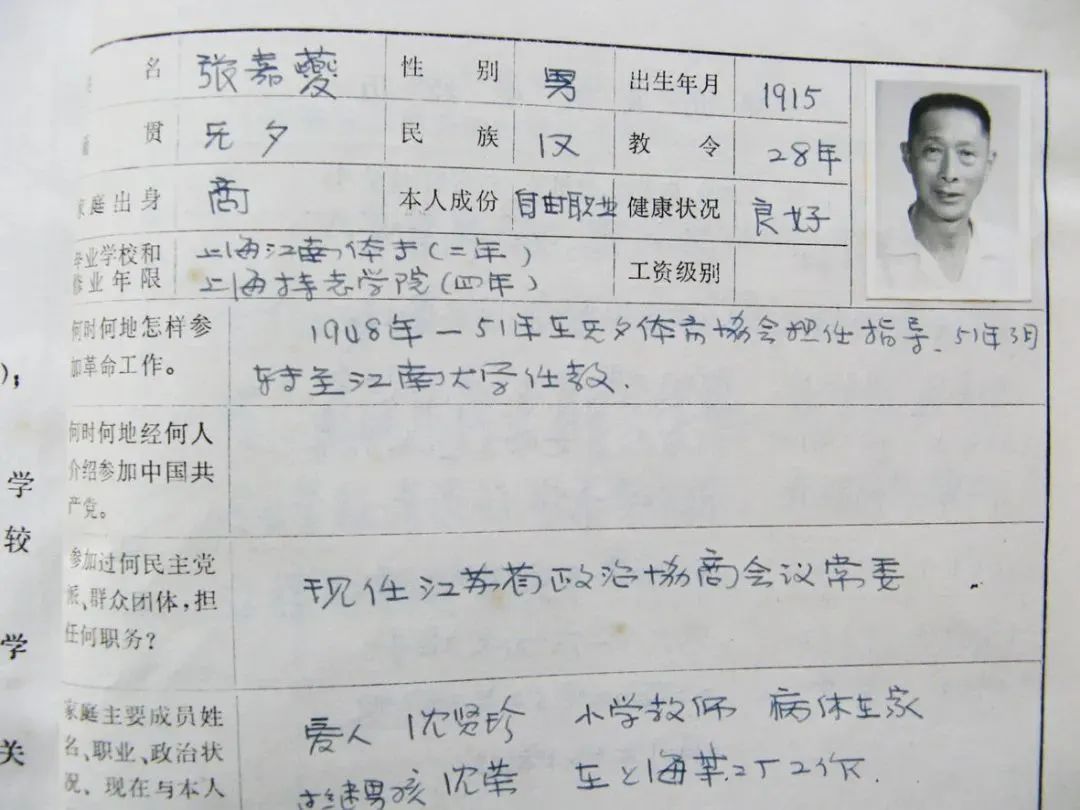 名 张嘉夔 性 别 男 出生年月 1915
贯 无夕 民 族 汉 教 令 28年
家庭出身 商 本人成份 自由职业 健康状况 良好
毕业学校和 上海江南体专(二年)
修业年限 上海持志学院(四年) 工资级别
何时何地怎样参 1948年－51年在无夕体育協会担任指导．51年3月
加革命工作。 转至江南大学任教．
何时何地经何人
介绍参加中国共
产党。
参加过何民主党
派、群众团体，担 现任江苏省政治協商会议常委
任何职务？
家庭主要成员姓 爱人 沈贤珍 小学教师 病休在家
名、职业、政治状
况、现在与本人 男孩 沈荣 在上海某厂工作．
)；
学
较
学
关